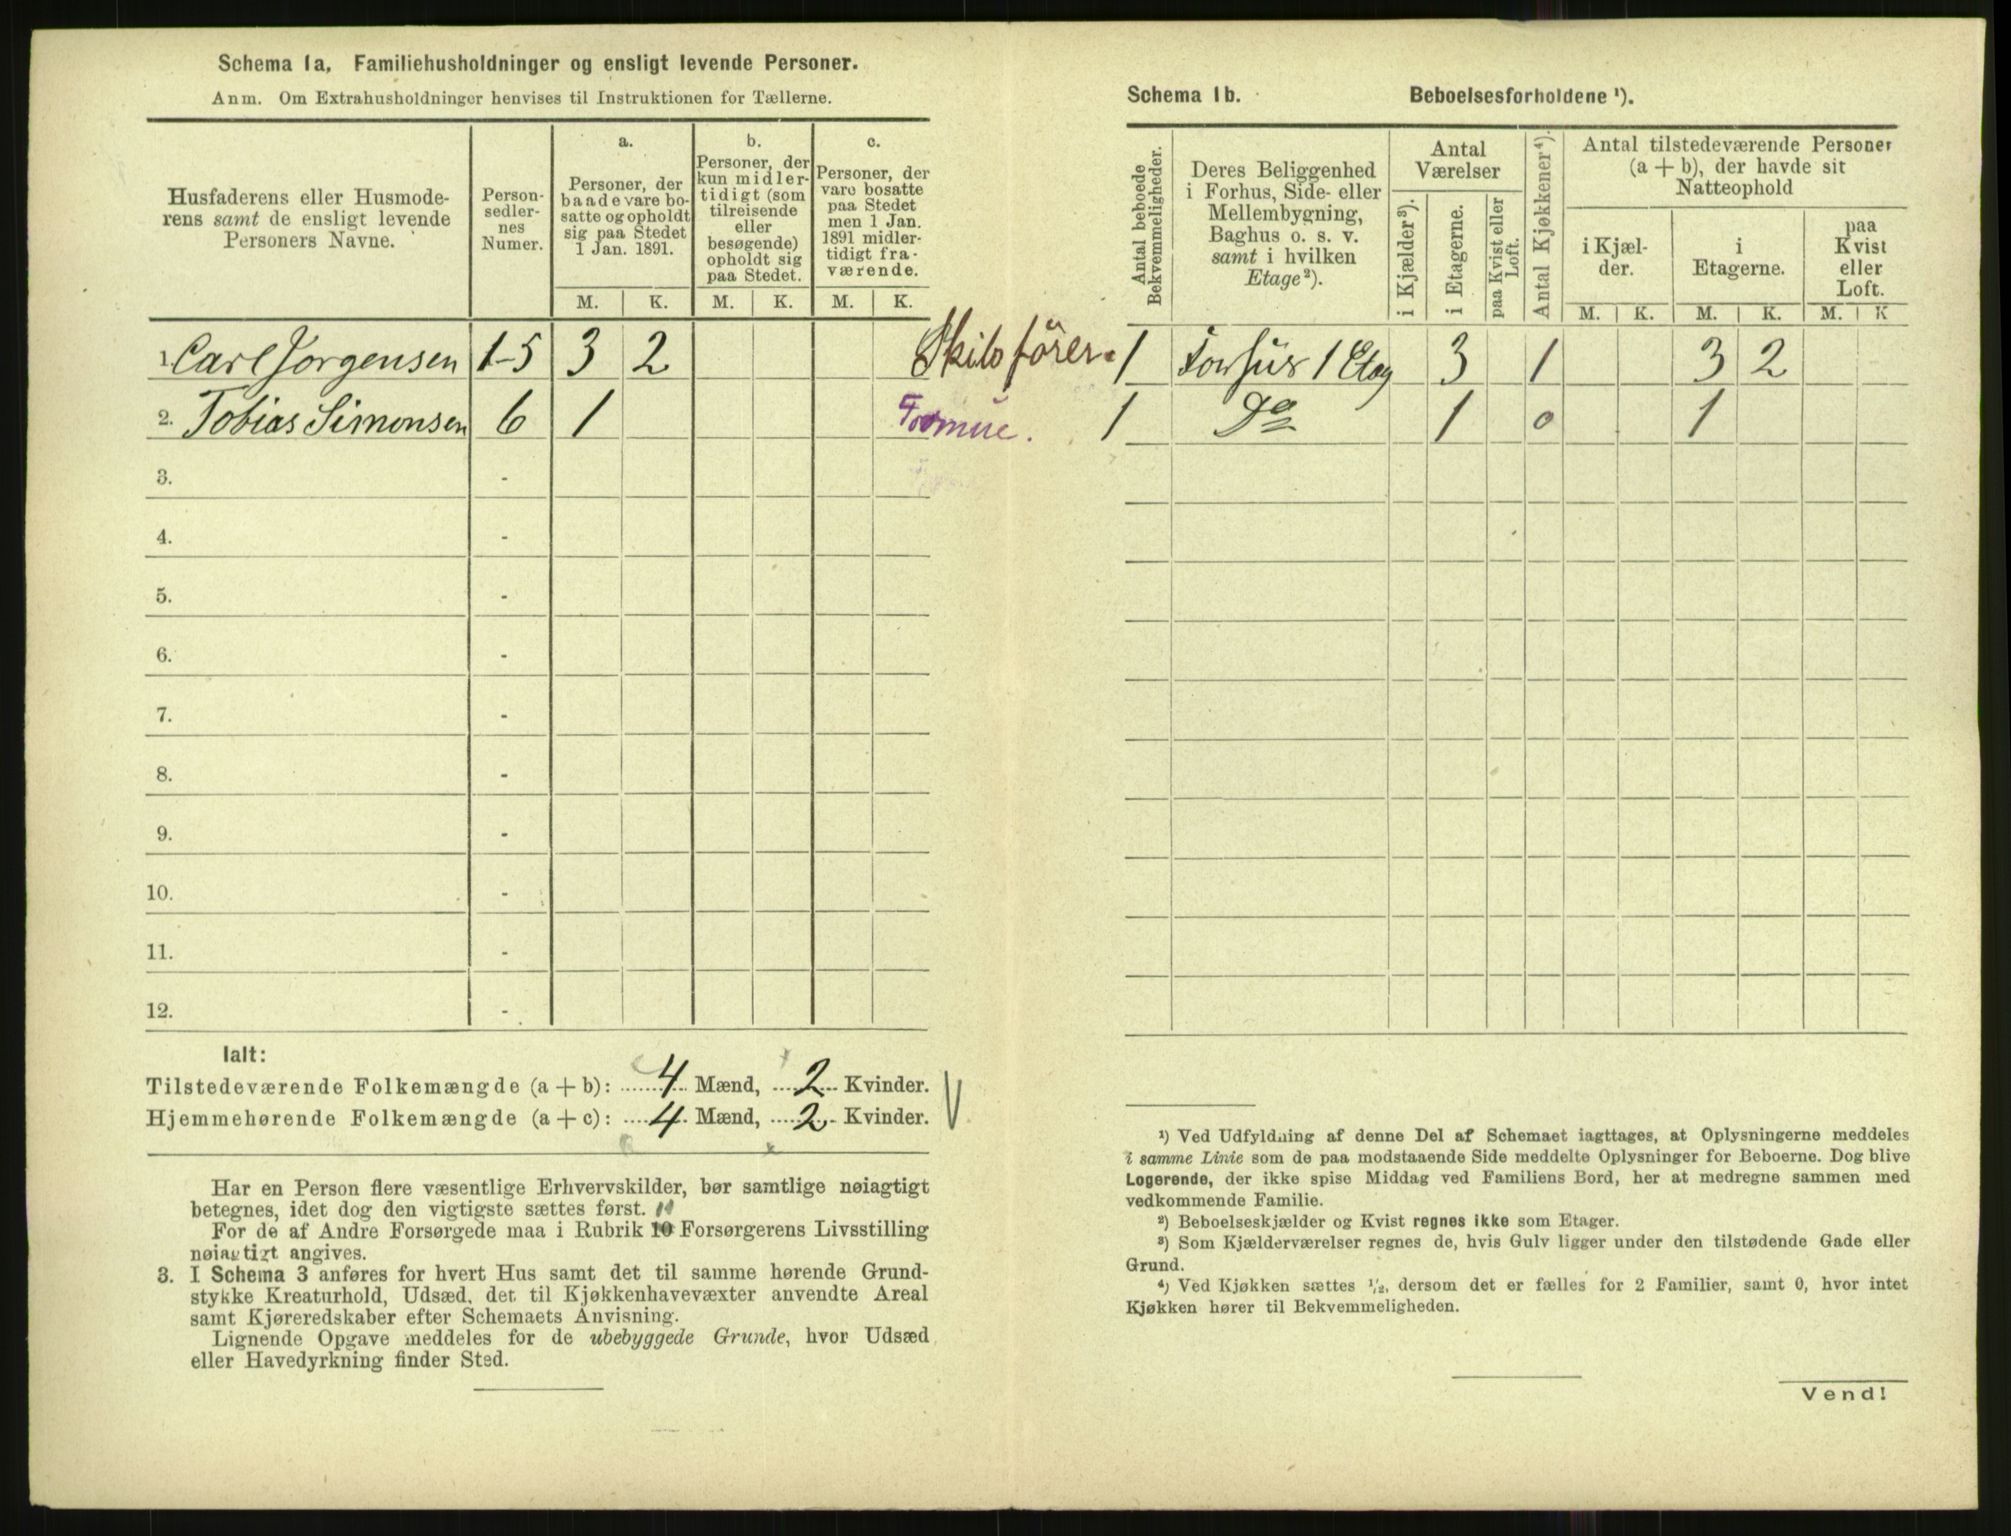 Schema 1a, Familiehusholdninger og ensligt levende Personer.
Anm. Om Extrahusholdninger henvises til Instruktionen for Tællerne.
Husfaderens eller Husmode-
rens samt de ensligt levende
Personers Navne.
Person-
sedler-
nes
Numer.
a.
Personer, der
baade vare bo-
satte og opholdt
sig paa Stedet
1 Jan. 1891.
b.
Personer, der
kun midler-
tidigt (som
tilreisende
eller
besøgende)
opholdt sig
paa Stedet.
c.
Personer, der
vare bosatte
paa Stedet
men 1 Jan.
1891 midler-
tidigt fra-
værende.
M. K. M. K. M. K.
1. Carl Jorgensen 1-5 3 2 Skibsförer.
2. Tobias Simonsen 6 1 Formue.
3. -
4. -
5. -
6. -
7. -
8. -
9. -
10. -
11. -
12. -
Ialt:
Tilstedeværende Folkemængde (a + b): 4 Mænd, 2 Kvinder.
Hjemmehørende Folkemængde (a + c): 4 Mænd, 2 Kvinder.
Har en Person flere væsentlige Erhvervskilder, bør samtlige nøiagtigt
betegnes, idet dog den vigtigste sættes først. 11
For de af Andre Forsørgede maa i Rubrik 10 Forsørgerens Livsstilling
nøiagtigt angives.
3. I Schema 3 anføres for hvert Hus samt det til samme hørende Grund-
stykke Kreaturhold, Udsæd, det til Kjøkkenhavevæxter anvendte Areal
samt Kjøreredskaber efter Schemaets Anvisning.
Lignende Opgave meddeles for de ubebyggede Grunde, hvor Udsæd
eller Havedyrkning finder Sted.
Schema 1b. Beboelsesforholdene ¹).
Antal beboede
Bekvemmeligheder.
Deres Beliggenhed
i Forhus, Side- eller
Mellembygning,
Baghus o. s. v.
samt i hvilken
Etage²).
Antal
Værelser
i Kjælder³).
i Etagerne.
paa Kvist eller
Loft.
Antal Kjøkkener⁴).
Antal tilstedeværende Personer
(a + b), der havde sit
Natteophold
i Kjæl-
der.
i
Etagerne.
paa
Kvist
eller
Loft.
M. K. M. K. M. K
1 Forhus 1 Etag 3 1 3 2
1 Do 1 0 1
¹) Ved Udfyldning af denne Del af Schemaet iagttages, at Oplysningerne meddeles
i samme Linie som de paa modstaaende Side meddelte Oplysninger for Beboerne. Dog blive
Logerende, der ikke spise Middag ved Familiens Bord, her at medregne sammen med
vedkommende Familie.
²) Beboelseskjælder og Kvist regnes ikke som Etager.
³) Som Kjælderværelser regnes de, hvis Gulv ligger under den tilstødende Gade eller
Grund.
⁴) Ved Kjøkken sættes ½, dersom det er fælles for 2 Familier, samt 0, hvor intet
Kjøkken hører til Bekvemmeligheden.
Vend!